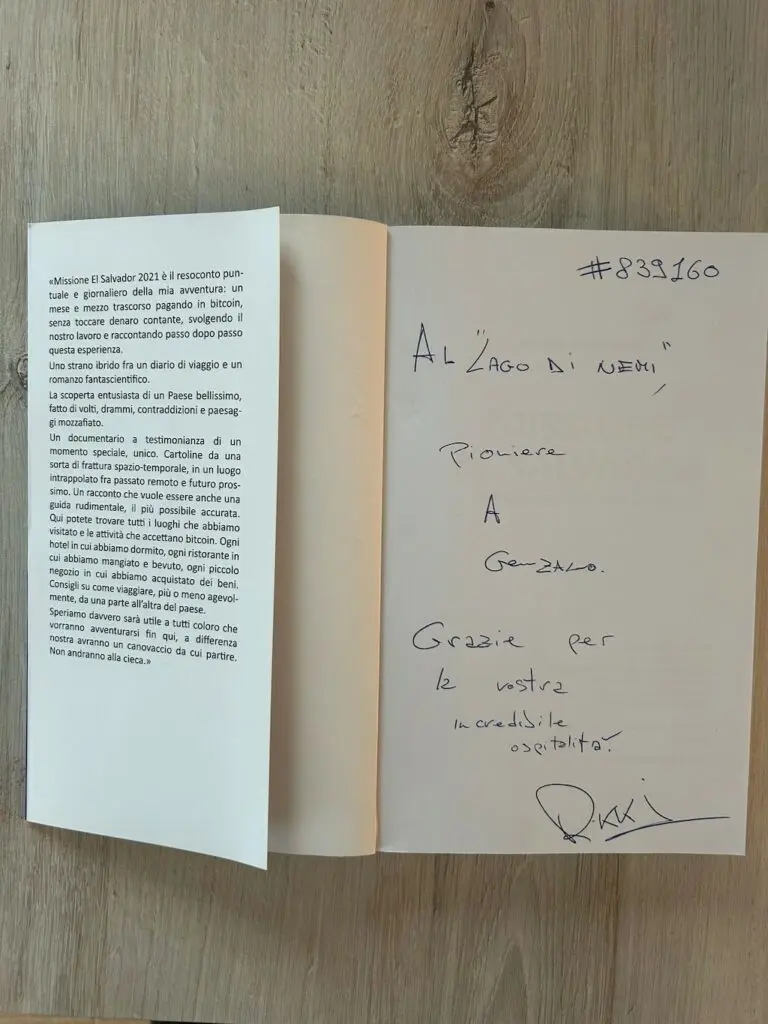 «Missione El Salvador 2021 è il resoconto pun-
tuale e giornaliero della mia avventura: un
mese e mezzo trascorso pagando in bitcoin,
senza toccare denaro contante, svolgendo il
nostro lavoro e raccontando passo dopo passo
questa esperienza.
Uno strano ibrido fra un diario di viaggio e un
romanzo fantascientifico.
La scoperta entusiasta di un Paese bellissimo,
fatto di volti, drammi, contraddizioni e paesag-
gi mozzafiato.
Un documentario a testimonianza di un
momento speciale, unico. Cartoline da una
sorta di frattura spazio-temporale, in un luogo
intrappolato fra passato remoto e futuro pros-
simo. Un racconto che vuole essere anche una
guida rudimentale, il più possibile accurata.
Qui potete trovare tutti i luoghi che abbiamo
visitato e le attività che accettano bitcoin. Ogni
hotel in cui abbiamo dormito, ogni ristorante in
cui abbiamo mangiato e bevuto, ogni piccolo
negozio in cui abbiamo acquistato dei beni.
Consigli su come viaggiare, più o meno agevol-
mente, da una parte all'altra del paese.
Speriamo davvero sarà utile a tutti coloro che
vorranno avventurarsi fin qui, a differenza
nostra avranno un canovaccio da cui partire.
Non andranno alla cieca.»
#839160
AL "LAGO DI NEMI",
Pioniere
A
GenZANO.
Grazie per
la vostra
incredibile
ospitalità.
Rikki